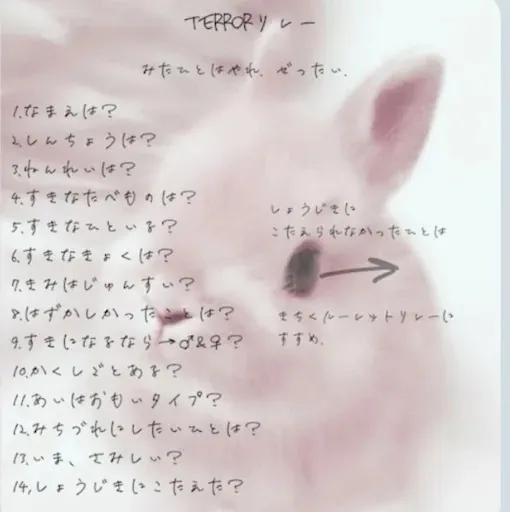 TERRORリレー
みたひとはやれ、ぜったい、
1.なまえは?
2.しんちょうは?
3.ねんれいは?
4.すきなたべものは?
5.すきなひといる?
6.すきなきょくは?
7.きみはじゅんすい?
8.はずかしかったことは?
9.すきになるなら→♂&♀?
10.かくしごとある?
11.あいはおもいタイプ?
12.みちづれにしたいひとは?
13.いま、さみしい?
14,しょうじきにこたえた?
しょうじきに
こたえられなかったひとは
きちくルーレットリレーに
すすめ、